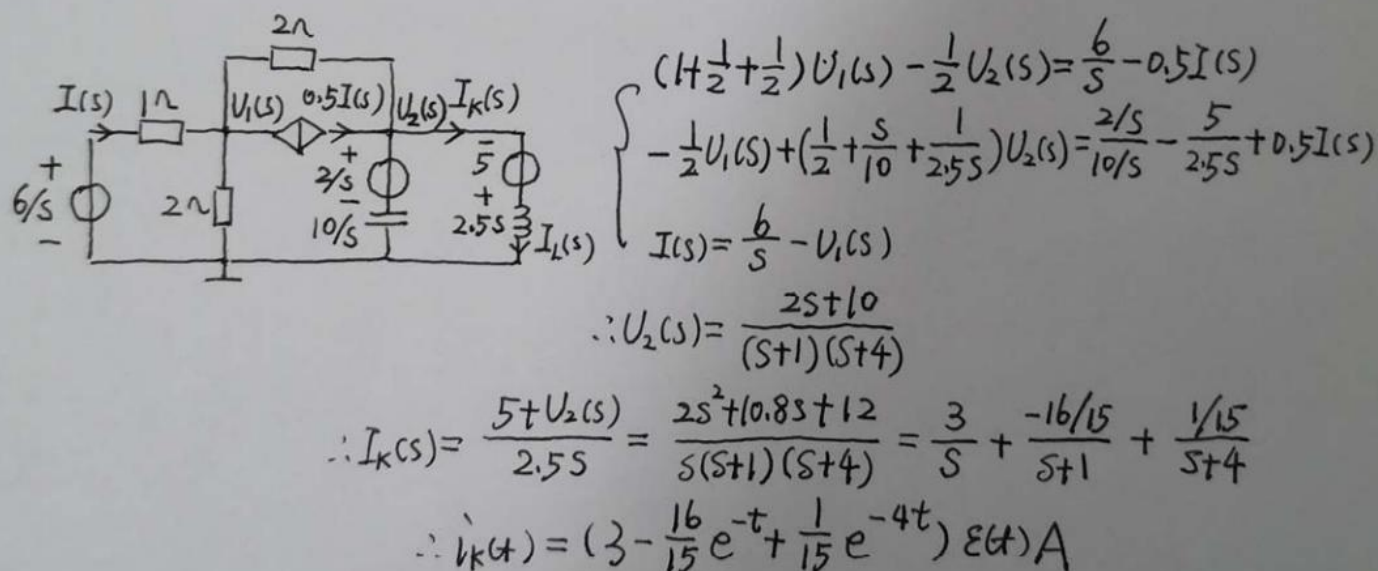 2Ω
I(s) 1Ω U₁(s) 0.5I(s) U₂(s) Iₖ(s)
+ 6/s −
2Ω
+ 2/s −
10/s
− 5 +
2.5s I_L(s)
(1+½+½)U₁(s) − ½U₂(s) = 6/s − 0.5I(s)
−½U₁(s) + (½ + s/10 + 1/2.5s)U₂(s) = (2/s)/(10/s) − 5/2.5s + 0.5I(s)
I(s) = 6/s − U₁(s)
∴U₂(s) = (2s+10)/((s+1)(s+4))
∴Iₖ(s) = (5+U₂(s))/2.5s = (2s²+10.8s+12)/(s(s+1)(s+4)) = 3/s + (−16/15)/(s+1) + (1/15)/(s+4)
∴iₖ(t) = (3 − 16/15 e^(−t) + 1/15 e^(−4t)) ε(t)A